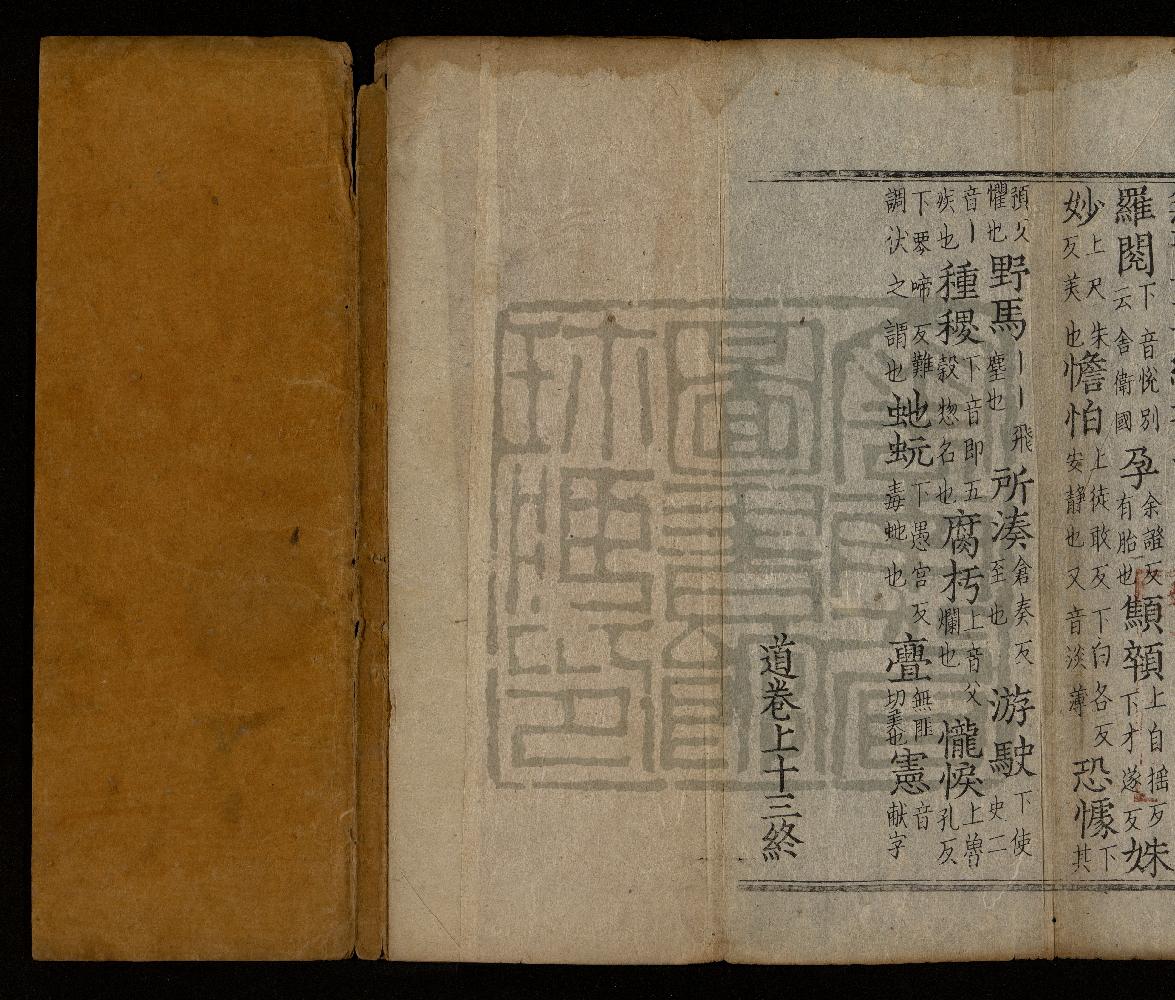 羅閱下音悅別云舍衛國孕余證反有胎也顦顇上自揺反下才遂反姝
妙上尺朱反美也憺怕上徒敢反下白各反安靜也又音淡薄恐懅下其
預反懼也野馬丨丨飛塵也所湊倉奏反至也游駛下使史二
音丨疾也種稷下音即五糓惣名也腐朽上音父爛也㦕悷上魯孔反
下零啼反難調伏之謂也虵蚖下愚宫反毒虵也亹無匪切美也憲音献字
道卷上十三終